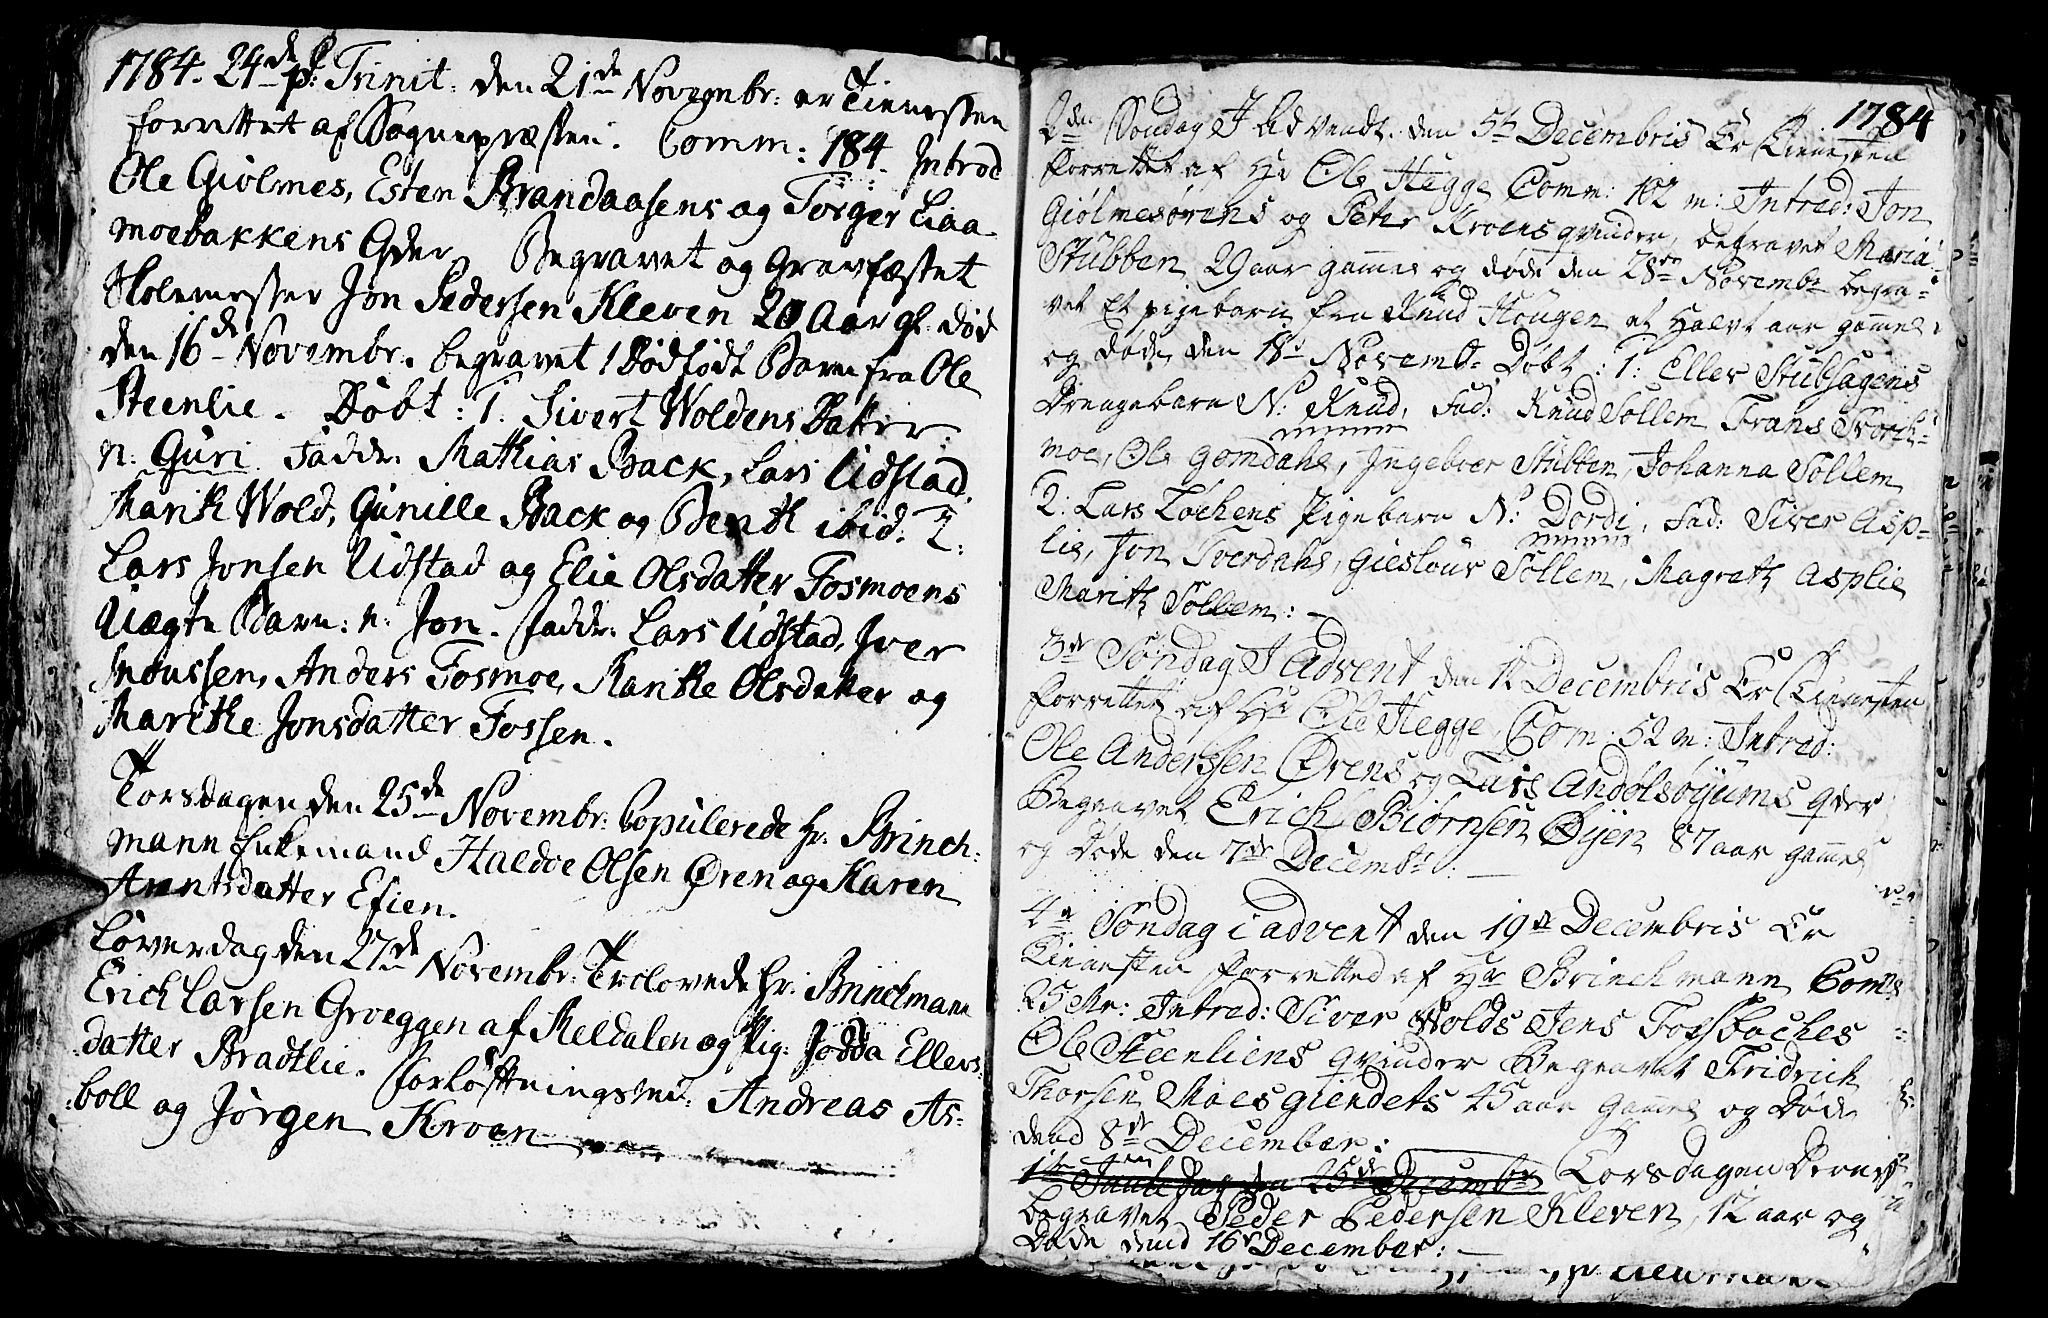 1784. 24de p: Trinit: den 21de Novembr: er Tienesten
forrettet af Sognepræsten: Comm: 184. Introd
Ole Giølmes, Esten Brandaasens og Torger Liaa-
moebakkens Qder. Begravet og Gravfæstet
Skolemester Jon Pedersen Kleven 20 Aar gl. død
den 16de Novembr. begravet 1 Dødfødt Barn fra Ole
Steenlie. Døbt: 1. Sivert Woldens Datter
n: Guri Fadd: Mathias Back, Lars Udstad,
Marit Wold, Gunille Back og Berith ibid. 2:
Lars Jonsen Udstad og Elie Olsdatter Fosmoens
Uægte Barn: n: Jon. Fadd: Lars Udstad, Iver
Knoussen, Anders Fosmoe, Marithe Olsdatter og
Marithe Jonsdatter Fossen.
Torsdagen den 25de Novembr: Copulerede Hr: Brinch-
mann Enkemand Haldoe Olsen Øren og Karen
Arentsdatter Efien.
Løverdag den 27de Novembr: Trolovede Hr: Brinchmann
Erich Larsen Groeggen af Meldalen og Pig: Jodda Ellers-
datter Bradtlie. Forløftningsmæ: Andreas As-
boll og Jørgen Kroen
1784
2den Søndag I Advendt den 5te Decembris Er Tienesten
forrettet af Hr Ole Hegge Comm: 102 m: Introd: Jon
Giølmesørens og Peter Kroens qvinder, begravet Maria
Stubben 29 aar gammel og døde den 28de Novembr begra-
vet Et pigebarn fra Knud Hougen et Halvt aar gammel
og døde den 18de Novembr Døbt: 1: Eller Stubsagens
Drengebarn N: Knud, Fad: Knud Sollem Frans Svorch-
moe, Ole Gomdahl, Ingebror Stubben, Johanna Sollem
2: Lars Løchens Pigebarn N: Dordi, Fad: Siver Asp-
lie, Jon Sverdahl, Gieslour Sollem, Magreth Asplie
Marith Sollem: —
3de Søndag I Advent den 12 Decembris Er Tienesten
forrettet af Hr Ole Hegge, Com: 52 m: Introd:
Ole Anderssen Ørens og Lars Andølsøyums qder
Begravet Erich Biørnsen Øyen 87 aar gammel
og Døde den 7de Decembr: —
4de Søndag i advent den 19de Decembris Er
Tienesten forretted af Hr Brinchmann Comm
25 Mr: Introd: Siver Wolds Jens Fossbaches
Ole Steenliens qvinder Begravet Fridrick
Thorsen Moesgiendets 45 aar gammel og Døde
dend 8de December:
1te Juule Dag den 25de Decembr Torsdagen Derneft
begravet Peder Pedersen Kleven, 12 aar og
Døde dend 16de December: —